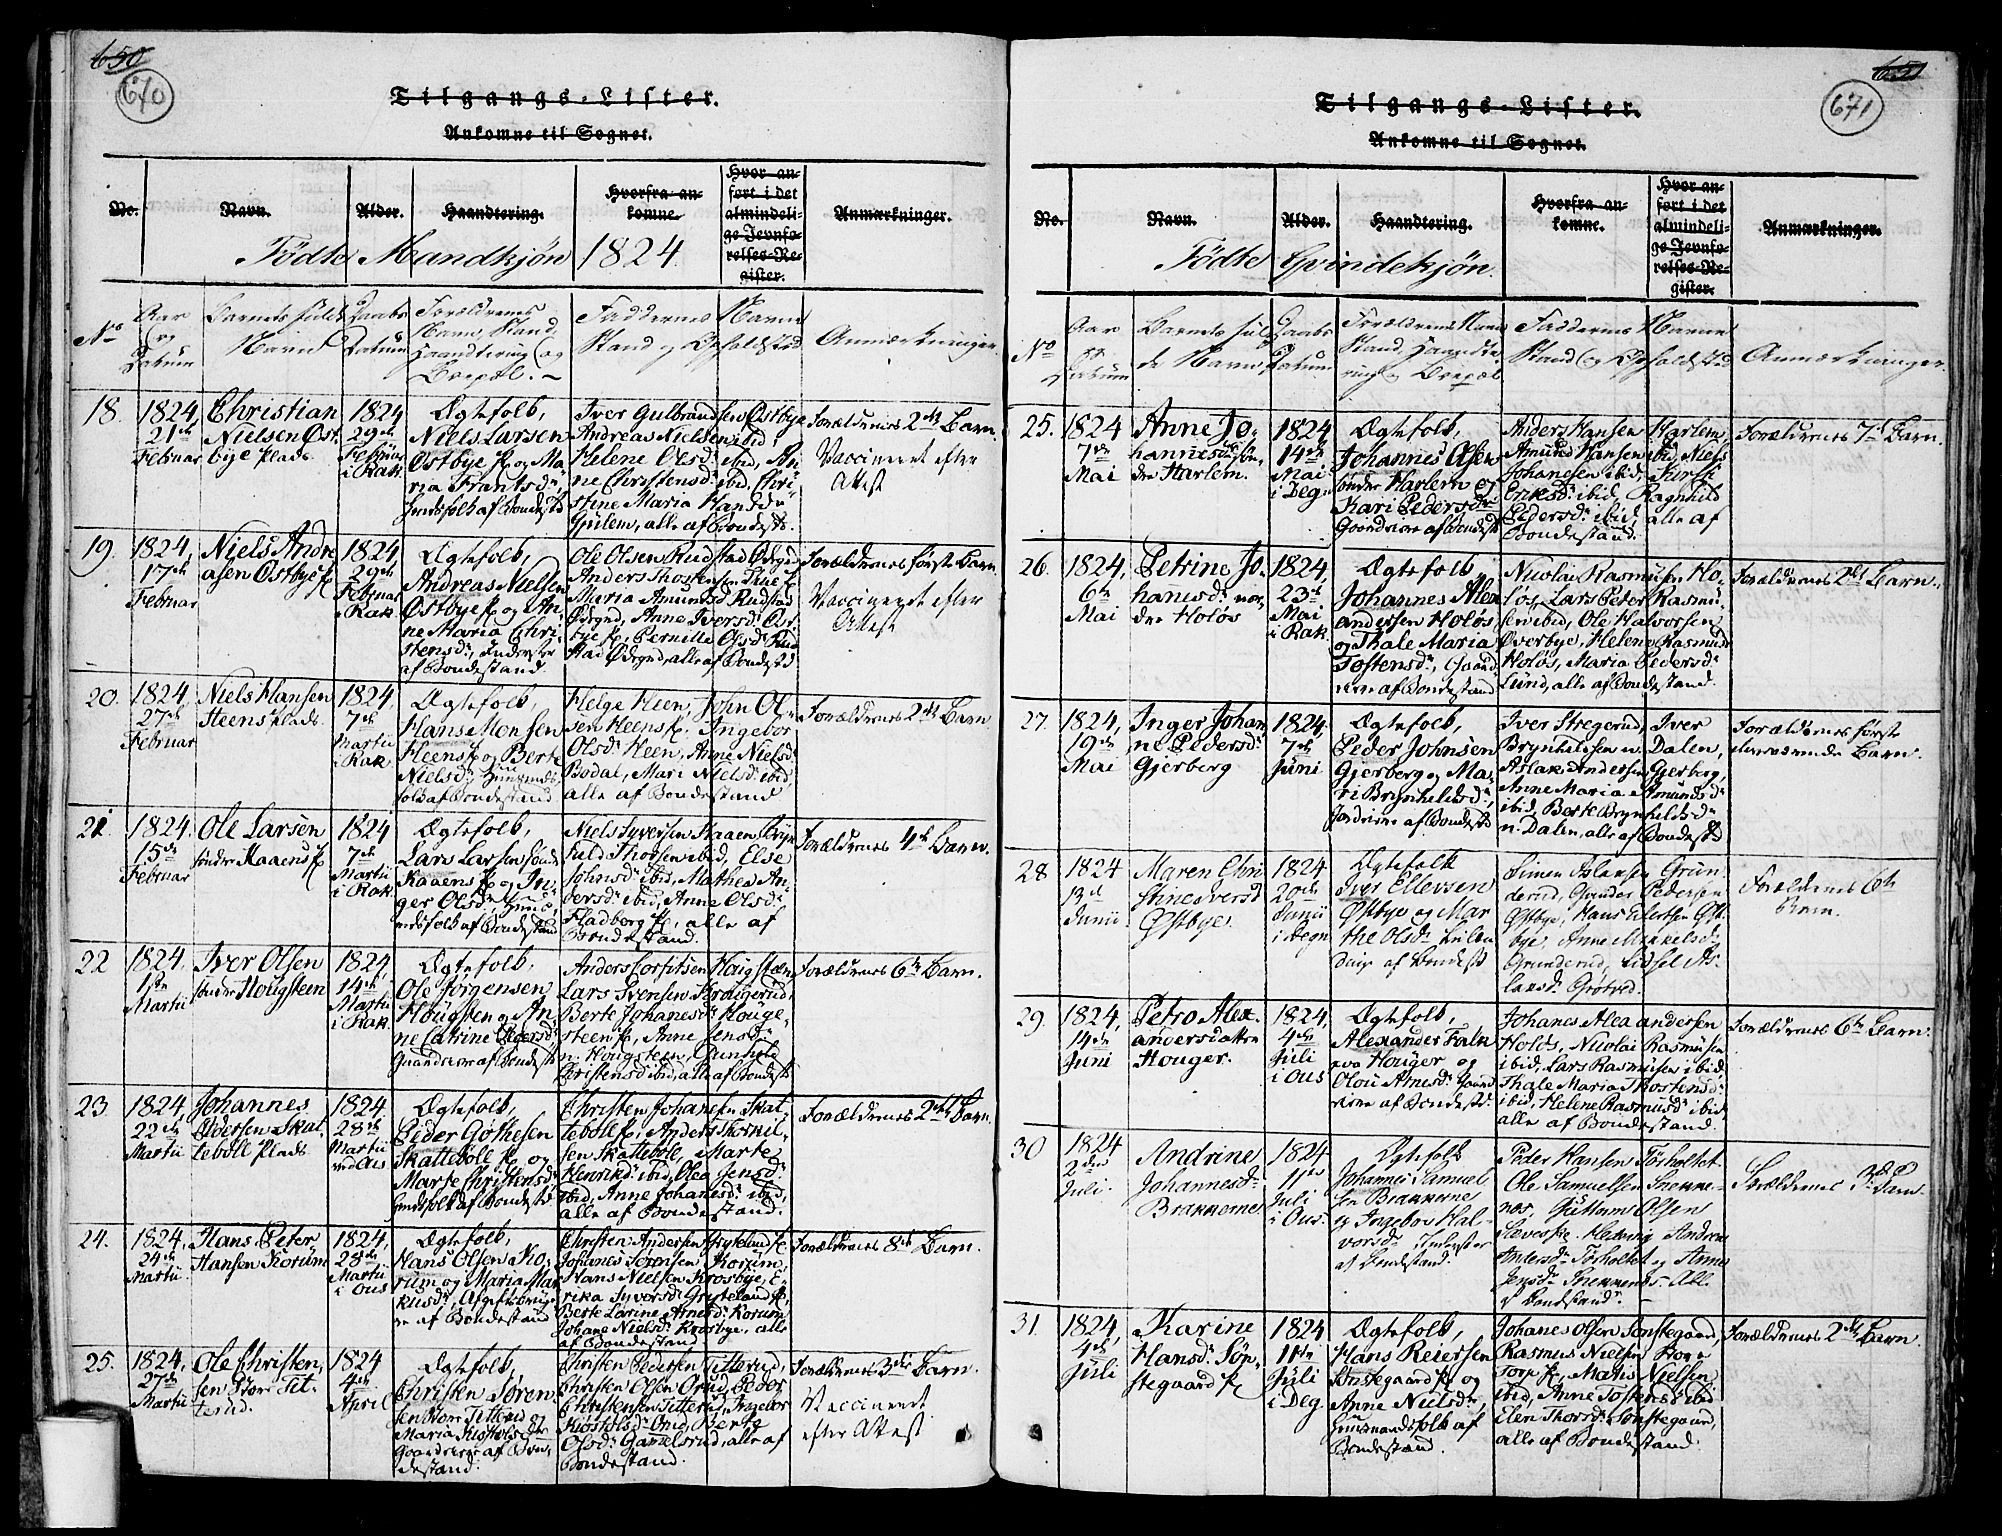 650
670
Tilgangs-Lister.
Ankomne til Sognet.
No.
Navn.
Alder.
Haandtering.
Hvorfra ankomne.
Hvor anført i det almindelige Jevnførelses-Register.
Anmærkninger.
Fødte Mandkjøn 1824
No
Aar og Datum
Barnets fulde Navn
Daabs Datum
Forældrenes Navn, Stand, Haandtering og Bopæl.
Faddernes Navne Stand og Opholdsted
Anmærkninger
18.
1824
21de
Februar
Christian
Nielsen Øst-
bye plads
1824
29de
Februar
i Rak.
Ægtefolk,
Niels Larsen
Østbye pl og Ma-
ria Frantsd.
Iver Gulbrandsen Østbye
Andreas Nielsen ibid,
Helene Olsd. ibid, An-
ne Christensd. ibid, Chri-
stine Maria Hansd.
alle af Bondest.
Forældrenes 2det Barn.
Vaccineret efter
Attest
19.
1824,
17de
Februar
Niels Andre
asen Østbye pl
1824
29de
Februar
i Rak.
Ægtefolk,
Andreas Nielsen
Østbye pl og An-
ne Maria Chri-
stensd.
af Bondestand.
Ole Olsen Rudstad Ødegrd
Maria Amundsd Rudstad
Ødegrd, Anne Iversd. Øst-
bye pl, Pernille Olsd. Rud
stad Ødegrd, alle af Bondestd
Forældrenes første Barn.
Vaccineret efter
Attest
20.
1824,
27de
Februar
Niels Hansen
Heens plads.
1824,
7de
Martii
i Rak
Ægtefolk,
Hans Monsen
Heens pl og Berte
Nielsd.
af Bondestand
Helge Heen, John Ol-
sen Heens pl. Ingebor
Olsd. Heen, Anne Nielsd
Bodal, Mari Nielsd. ibid,
alle af Bondestand
Forældrenes 2det Barn
21.
1824,
15de
Februar
Ole Larsen
sønder Kaaens pl
1824
7de
Martii
i Rak.
Ægtefolk,
Lars Larsen sønder
Kaaens pl og In-
ger Olsd.
af Bondestand
Niels Syversen Kaaen Bryn
Else
Johnsd. ibid, Mathea An-
dersd. ibid, Anne Olsd.
Fladborg pl, alle af
Bondestand.
Forældrenes 4de Barn.
22
1824,
1ste
Martii
Iver Olsen
sønder Hougsteen
1824,
14de
Martii
i Rak.
Ægtefolk,
Ole Jorgensen
Hougsten og An-
ne Catrine
Gaardeiere af Bondest.
Anders Corfitsen Hougsteen
Lars Svensen Kraugerud,
Berte Johanesd. Houge-
steen pl, Anne Jensd.
n. Hougsteen, Gunhild
Christensd. ibid, alle af Bondest.
Forældrenes 6te Barn.
23
1824,
22de
Martii
Johannes
Pedersen Skat-
tebøll Plads
1824.
28de
Martii
Ægtefolk,
Peder Gothesen
Skattebøll pl og
Marte Christensd.
af Bondestd.
Christen Johanesen Skat-
tebøll pl, Anders Thorkil-
sen Skattebøll, Marte
Henriksd. ibid, Olea Jensd.
ibid, Anne Johanesd. ibid,
alle af Bondestand.
Forældrenes 2det Barn.
24.
1824,
24de
Martii
Hans Peter
Hansen Korum
1824,
28de
Martii
i Ous
Ægtefolk,
Hans Olsen Ko-
rum og Maria Mar-
kusd.
af Bondestand
Christen Andersen Grytelund pl.
Johanes Sørensen Korum,
Hans Nielsen Krosbye, E-
rika Syversd. Grytelund pl,
Berte Larine Arnesd. Korum
Johane Nielsd. Krosbye, alle
af Bondestand.
Forældrenes 8de Barn.
25.
1824,
27de
Martii
Ole Christen,
sen Store Tit-
terud.
1824
4de
April
Ægtefolk,
Christen Søren-
sen Store Titterud og
Maria
Gaardeiere af Bon-
destand.
Christen Pedersen Titterud,
Christen Olsen Orud, Peder
Christensen Titterud, Ingebor
Orud, Berte
Olsd. Gamelsrud, alle af
Bondestand.
Forældrenes 3die Barn.
Vaccineret
efter Attest
651
671
Tilgangs-Lister.
Ankomne til Sognet.
No.
Navn.
Alder.
Haandtering.
Hvorfra ankomne.
Hvor anført i det almindelige Jevnførelses-Register.
Anmærkninger.
Fødte Qvindekjøn.
No
Aar og Datum
Barnets fulde Navn
Daabs Datum
Forældrenes Navn Stand Haandtering Bopæl
Faddernes Navne Stand og Opholdsted
Anmærkninger
25.
1824
7de
Mai
Anne Jo,
hannesd. søn,
dre Harlem.
1824
14de
Mai
i Deg.
Ægtefolk,
Johannes Olsen
søndre Harlem og
Kari Pedersdr
Gaardeiere af Bondest
Anders Hansen Harlem,
Amund Hansen ibid, Niels
Johanesen ibid, Kirsti
Eriksd. ibid, Ragnhild
Pedersd. ibid, alle af
Bondestand.
Forældrenes 7de Barn.
26.
1824,
6te
Mai
Petrine Jo,
hanesd. nor,
dre Holøs
1824,
23de
Mai
i Rak.
Ægtefolk
Johannes Alex
andersen Holøs
og Thale Maria
Tostensd.
af Bondestand
Nicolai Rasmusen Ho-
løs, Lars Peder Rasmu-
sen ibid, Ole Halvorsen
Øverbye, Helene Rasmusd.
Holøs, Maria Pedersd.
Lund, alle af Bondestand.
Forældrenes 2det Barn.
27.
1824,
19de
Mai
Inger Johan
ne Pedersd.
Gjerberg
1824,
7de
Juni
Ægtefolk,
Peder Johnsen
Gjerberg og Ma-
ri Brynhildsd.,
Jordeiere af Bondestd
Iver Stregerud, Iver
Brynhildsen n. Dalen,
Aslak Andersen Gjerberg,
Anne Maria Amundsd.
ibid, Berte Brynhildsd.
n. Dalen, alle af Bondestd
Forældrenes første
nærværende Barn.
28
1824
13de
Junii
Maren Chri
stine Iversd
Østbye.
1824
20de
Junii
i Degn
Ægtefolk
Iver Ellevsen
Østbye og Mar
the Olsd.
af Bondest
Simen Aslaksen Grun-
derud, Gunder Pedersen
Østbye, Hans Ellevsen Øst-
bye, Anne Mikkelsd.
Grunderud, Lidsel As-
laksd. Grøtved.
Forældrenes 6te
Barn.
29.
1824,
14de
Juni
Petro Alex-
andersd.
Houger.
1824,
4de
Juli
i Ous
Ægtefolk,
Alexander Falk
Houger og
Olou Arnesd.
af Bondestd.
Johanes Alexandersen
Holøs, Nicolai Rasmusen
ibid, Lars Rasmusen ibid,
Thale Maria Thostensd.
ibid, Helene Rasmusd. ibid
alle af Bondestand.
Forældrenes 6te Barn.
30
1824
2den
Juli.
Andrine
Johannesd.
Brakkernes
1824
11te
Juli
i Ous.
Ægtefolk
Johannes Samuel
sen Brakkernes
og Ingebor Hal-
vorsd.
af Bondestand.
Peder Hansen Torholtet.
Ole Samuelsen Snekke-
nes, Guttorm Olsen
Hedevig Andrea
Andersd. Torholtet og Anne
Jensd. Snekkenes. Alle
af Bondestand.
Forældrenes 3die Barn.
31.
1824,
4de
Juli
Karine
Hansd. Søn-
stegaard pl
1824
11te
Juli
i Deg
Ægtefolk,
Hans Reiersen
Sønstegaard pl og
Anne Nielsd.,
Huusmandsfolk af
Bondestand.
Johanes Olsen Sønstegaard,
Rasmus Nielsen Hore
Torp pl, Matis Nielsen
ibid, Anne Tostensd ibid
Elen Thorsd. Sønstegaard,
alle af Bondestand.
Forældrenes 2det Barn.